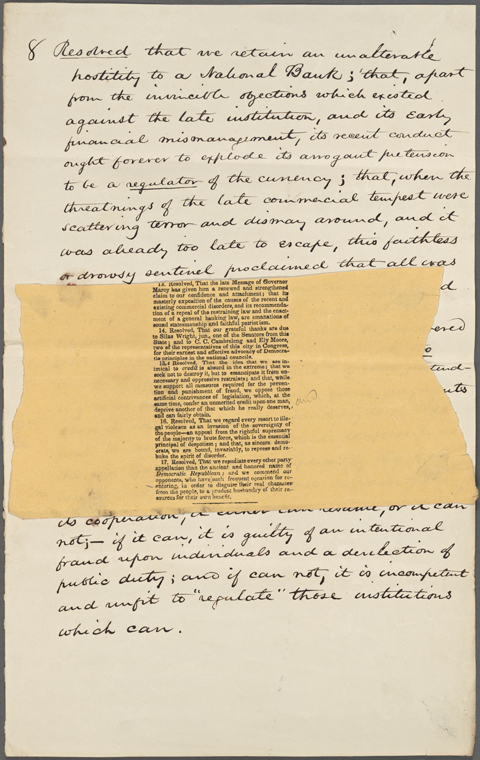 8 Resolved that we retain an unalterable
hostility to a National Bank; that, apart
from the invincible objections which existed
against the late institution, and its early
financial mismanagement, its recent conduct
ought forever to explode its arrogant pretension
to be a regulator of the currency; that, when the
threatnings of the late commercial tempest were
scattering terror and dismay around, and it
was already too late to escape, this faithless
or drowsy sentinel proclaimed that all was
13. Resolved, That the late Message of Governor
Marcy has given him a renewed and strengthened
claim to our confidence and attachment; that its
masterly exposition of the causes of the recent and
existing commercial disorders, and its recommenda-
tion of a repeal of the restraining law and the enact-
ment of a general banking law, are emanations of
sound statesmanship and faithful patriotism.
14. Resolved, That our grateful thanks are due
to Silas Wright, jun., one of the Senators from this
State; and to C. C. Cambreleng and Ely Moore,
two of the representatives of this city in Congress,
for their earnest and effective advocacy of Democra-
tic principles in the national councils.
15. Resolved, That the idea that we are in-
imical to credit is absurd in the extreme; that we
seek not to destroy it, but to emancipate it from un-
necessary and oppressive restraints; and that, while
we support all measures required for the preven-
tion and punishment of fraud, we oppose those
artificial contrivances of legislation, which, at the
same time, confer an unmerited credit upon one man,
deprive another of that which he really deserves,
and can fairly obtain.
and
16. Resolved, That we regard every resort to ille-
gal violence as an invasion of the sovereignty of
the people—an appeal from the rightful supremacy
of the majority to brute force, which is the essential
principal of despotism; and that, as sincere demo-
crats, we are bound, invariably, to repress and re-
buke the spirit of disorder.
17. Resolved, That we repudiate every other party
appellation than the ancient and honored name of
Democratic Republican; and we commend our
opponents, who have such frequent occasion for re-
in order to disguise their real character
from the people, to a prudent husbandry of their re-
sources for their own benefit.
its cooperation, it either can resume, or it can
not;— if it can, it is guilty of an intentional
fraud upon individuals and a dereliction of
public duty; and if can not, it is incompetent
and unfit to "regulate" those institutions
which can.